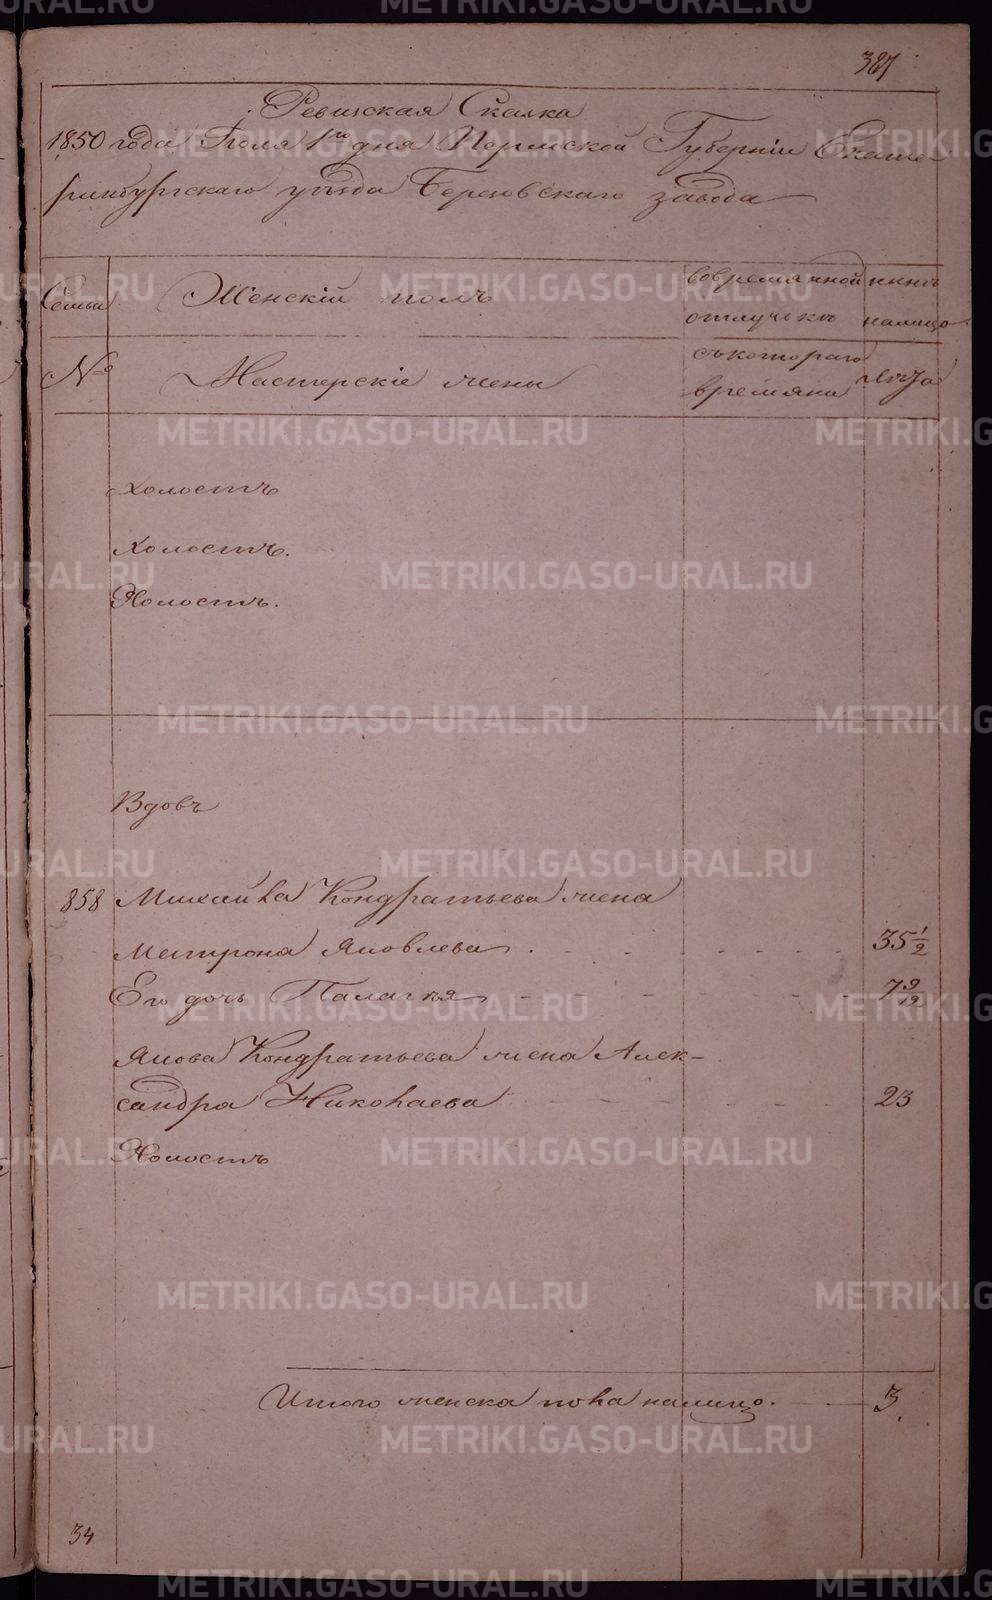 387
Ревизская Сказка
1850 года Июля 1го дня Пермской Губернiи Екате-
ринбургскаго уѣзда Березовскаго завода
Семьи Женскiй полъ вовременной ныне
отлучькѣ налицо
№ Мастерскiе жены съкотораго
времяни лѣта
Холостъ
Холостъ.
Холостъ.
Вдовъ
858 Михаила Кондратьева жена
Матрона Яковлева 35 1/2
Его дочь Палагья 7 9/12
Якова Кондратьева жена Алек-
сандра Николаева 23
Холостъ
Итого женска пола налицо. 3.
34
METRIKI.GASO-URAL.RU